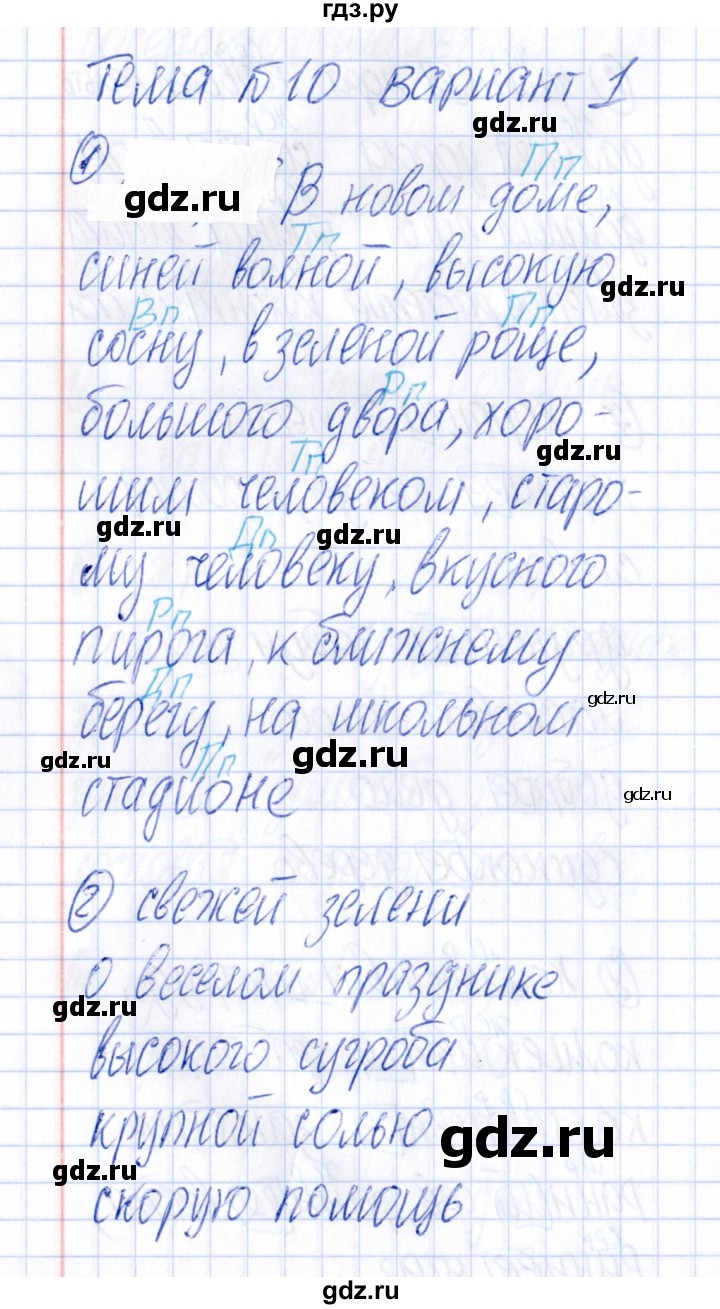 гдз.ру
Тема №10 вариант 1
gdz.ru
① Пп
gdz.ru В новом доме,
Тп
синей волной, высокую
gdz.ru
Вп Пп
сосну, в зеленой роще,
Рп
большого двора, хоро-
gdz.ru
Тп
шим человеком, старо-
gdz.ru gdz.ru
Дп
му человеку, вкусного
Рп
пирога, к ближнему
Дп
берегу, на школьном
gdz.ru
gdz.ru Пп gdz.ru
стадионе
gdz.ru
② свежей зелени
о веселом празднике
gdz.ru
высокого сугроба
крупной солью
gdz.ru
gdz.ru
скорую помощь
gdz.ru